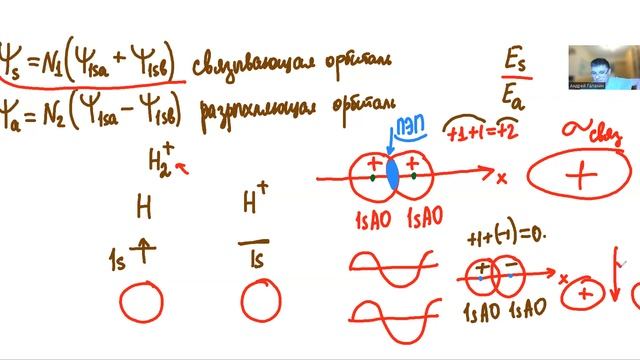 Ψs = N1(Ψ1sa + Ψ1sb) связывающая орбиталь
Ψa = N2(Ψ1sa − Ψ1sb) разрыхляющая орбиталь
Es
Ea
Андрей Галанин
H2+
H
H+
1s
1s
ПЭП
+1+1=+2
σсвяз
+ +
x
+
1sAO 1sAO
+1+(-1)=0.
+ −
x
+
1sAO 1sAO